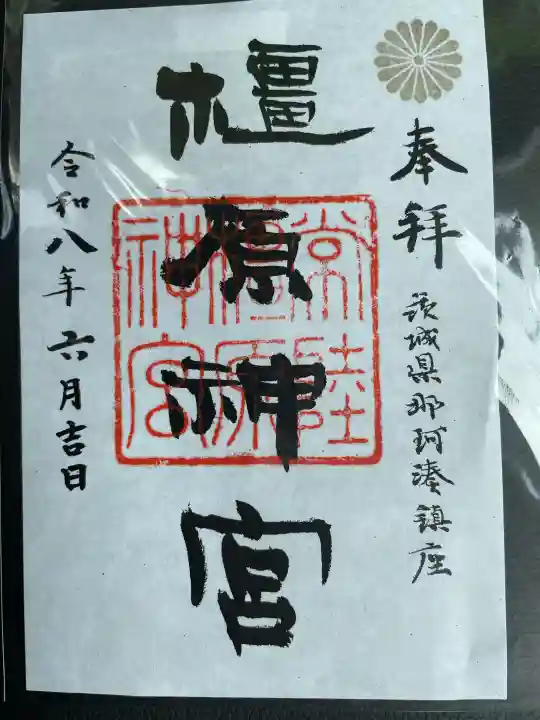 奉拝
茨城県那珂湊鎮座
橿原神宮
常陸
橿原
神宮
令和八年六月吉日